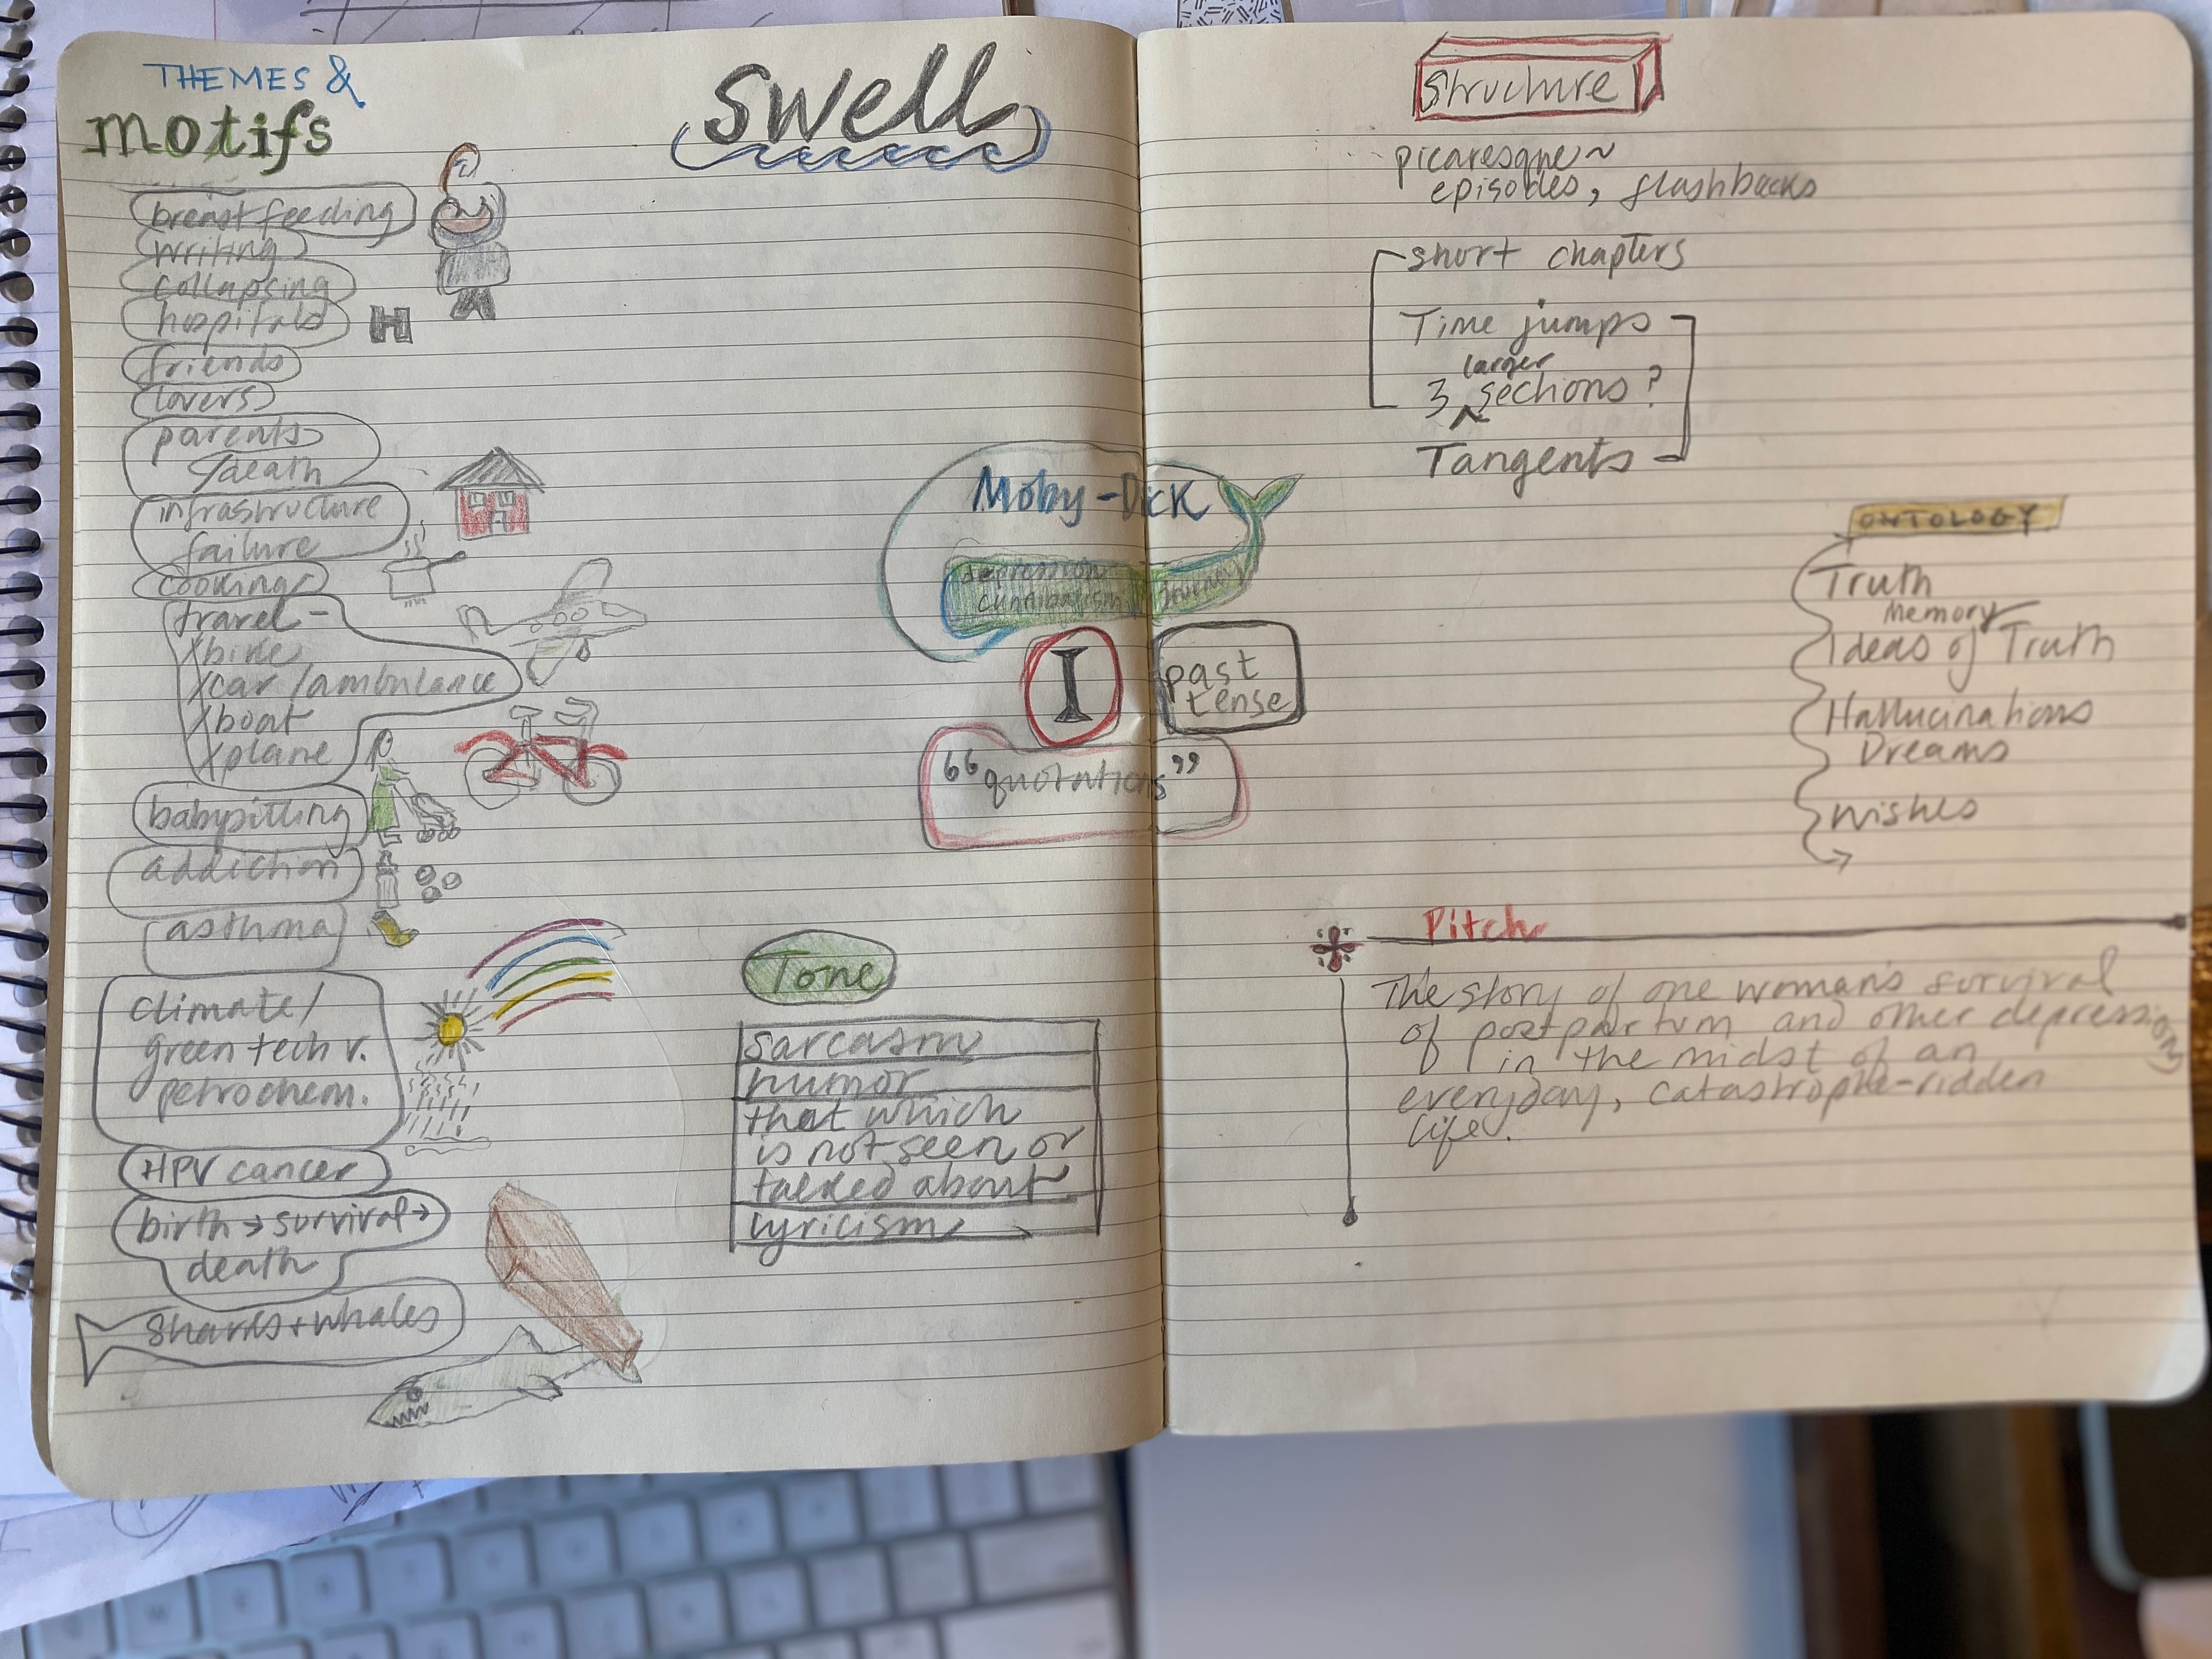 THEMES &
motifs
breastfeeding
writing
collapsing
hospitals
H
friends
lovers
parents
/death
infrastructure
failure
cooking
travel -
bike
car/ambulance
boat
plane
babysitting
addiction
asthma
climate/
green tech v.
petrochem.
HPV cancer
birth → survival →
death
sharks + whales
swell
Moby-Dick
depression
cannibalism
journey
I
past
tense
"quotations"
Tone
sarcasm
humor
that which
is not seen or
talked about
lyricism
Structure
picaresque ~
episodes, flashbacks
short chapters
Time jumps
larger
3 ^ sections?
Tangents
ONTOLOGY
Truth
Memory
Ideas of Truth
Hallucinations
Dreams
Wishes
Pitch
The story of one woman's survival
of postpartum and other depression
in the midst of an
everyday, catastrophe-ridden
life.